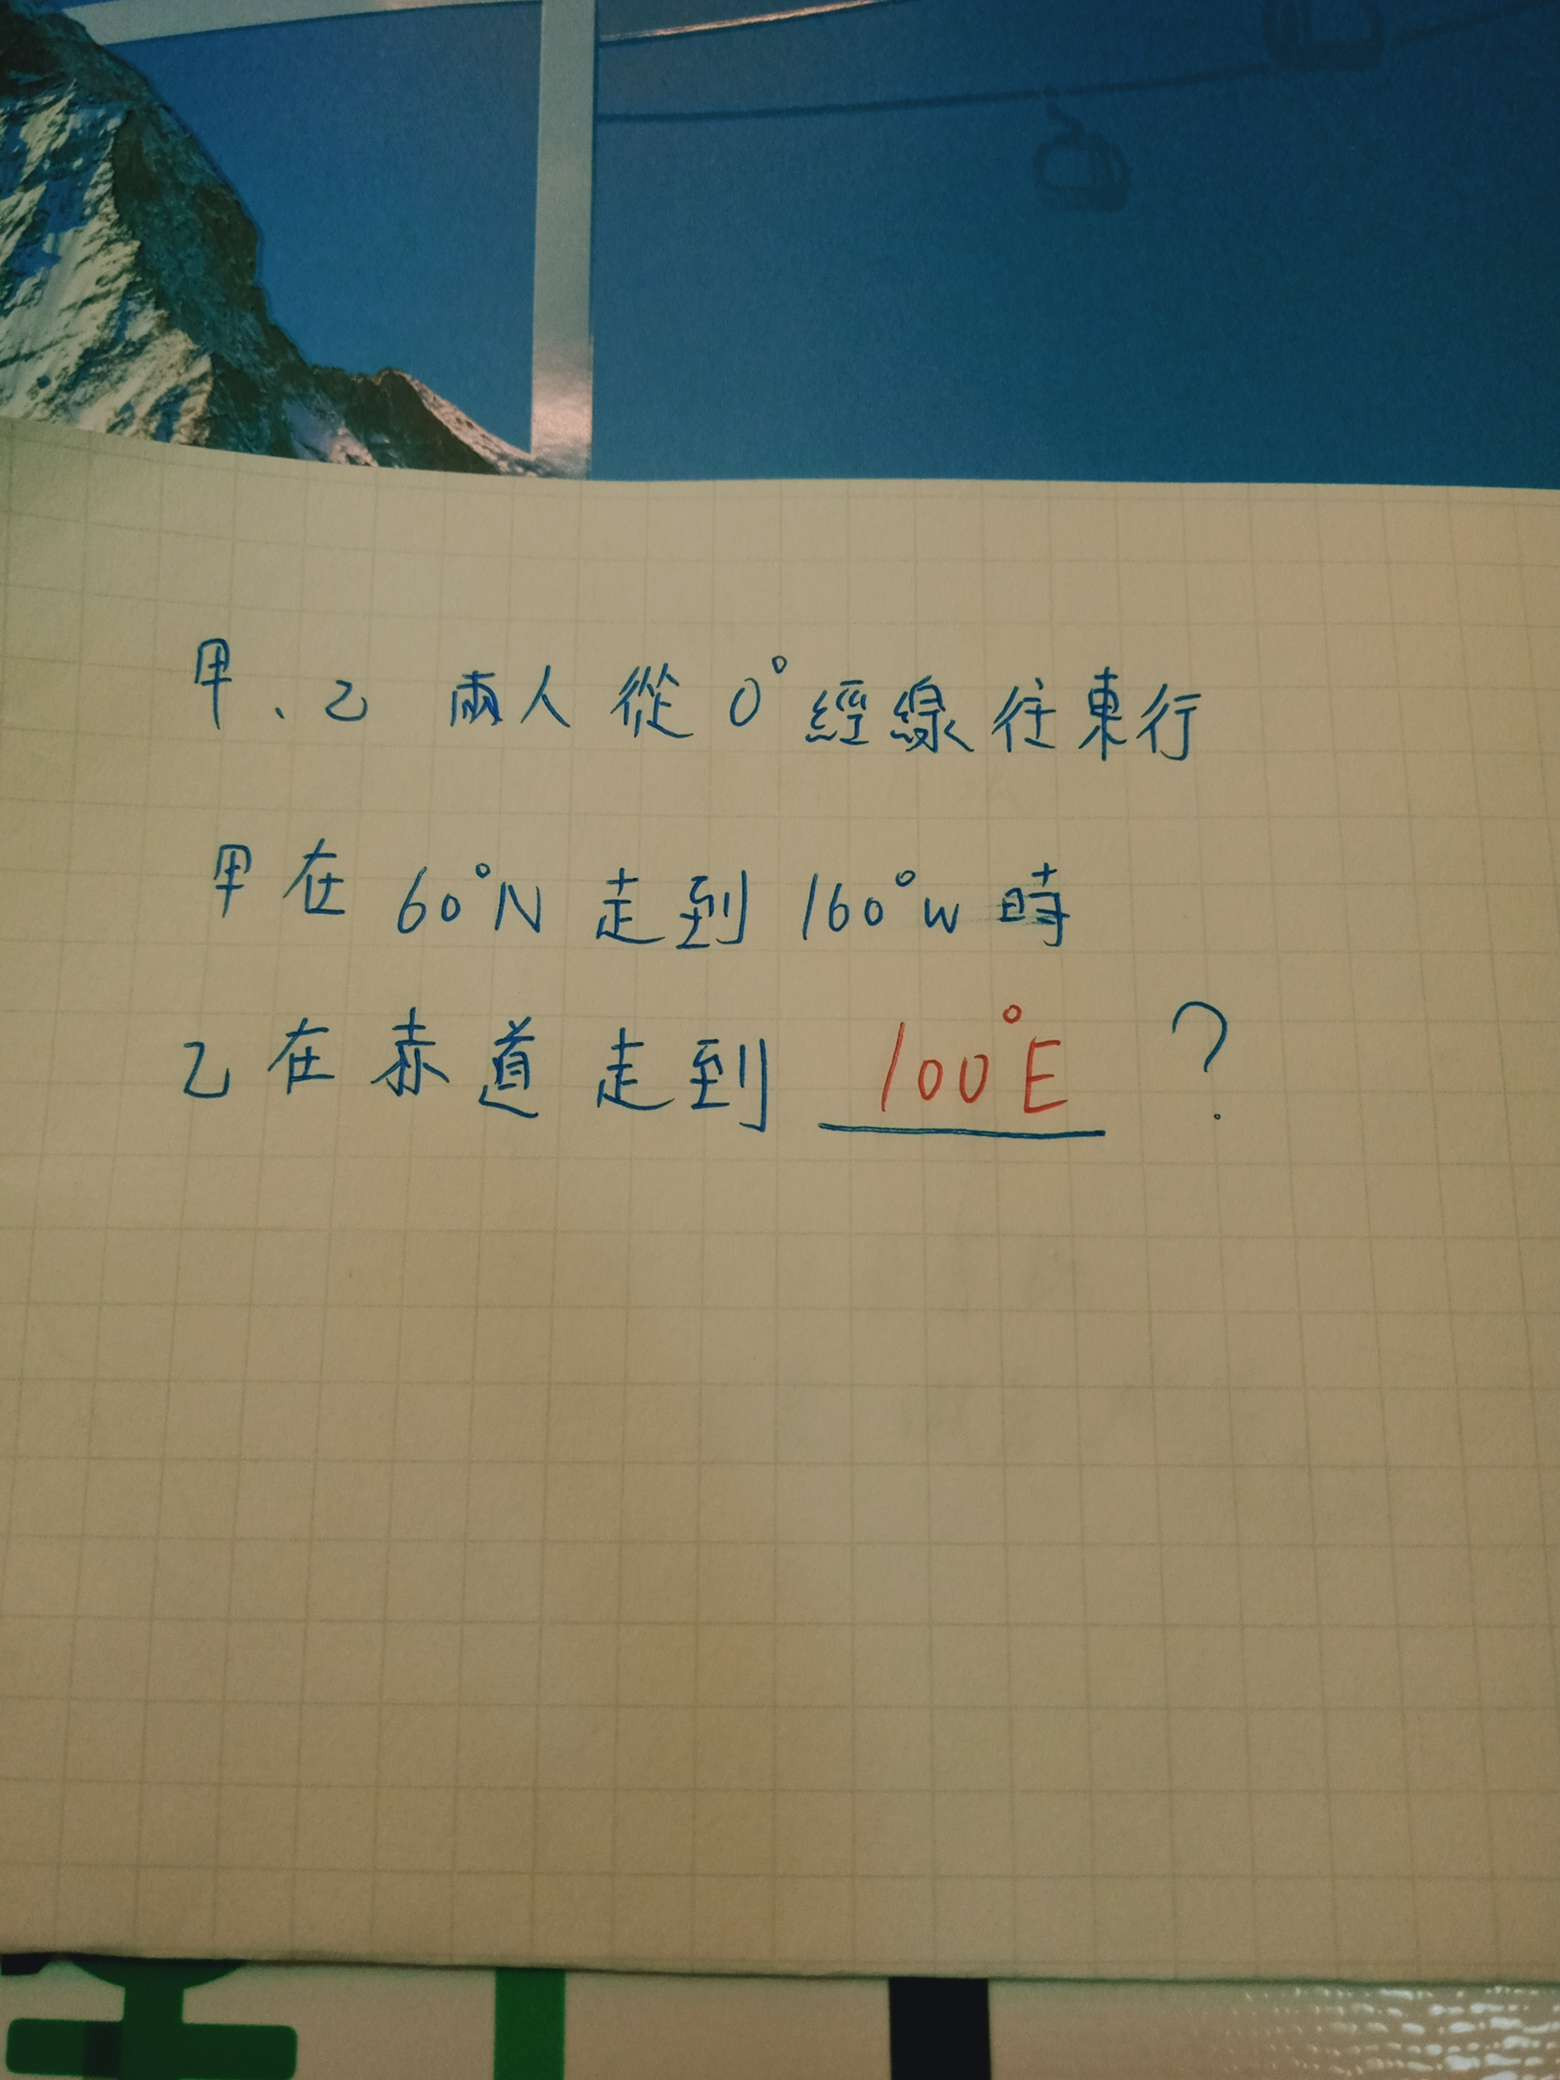 甲、乙 兩人從 0°經線往東行
甲在 60°N 走到 160°W 時
乙在赤道走到 100°E ?